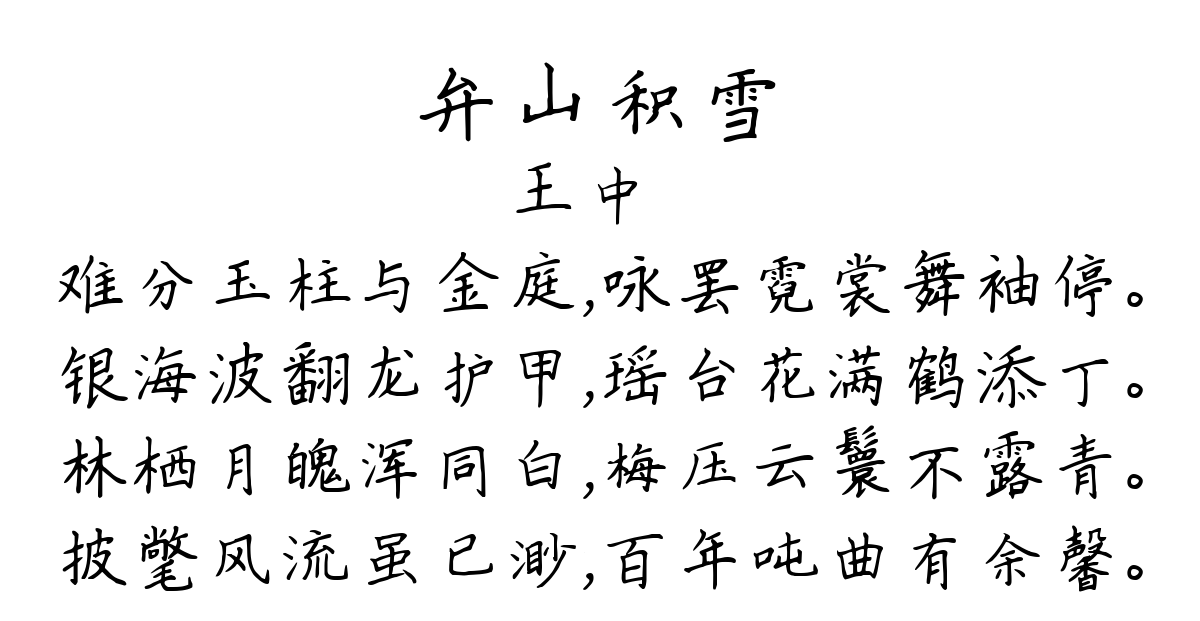 弁山积雪
王中
难分玉柱与金庭,咏罢霓裳舞袖停。
银海波翻龙护甲,瑶台花满鹤添丁。
林栖月魄浑同白,梅压云鬟不露青。
披氅风流虽已渺,百年吨曲有余馨。